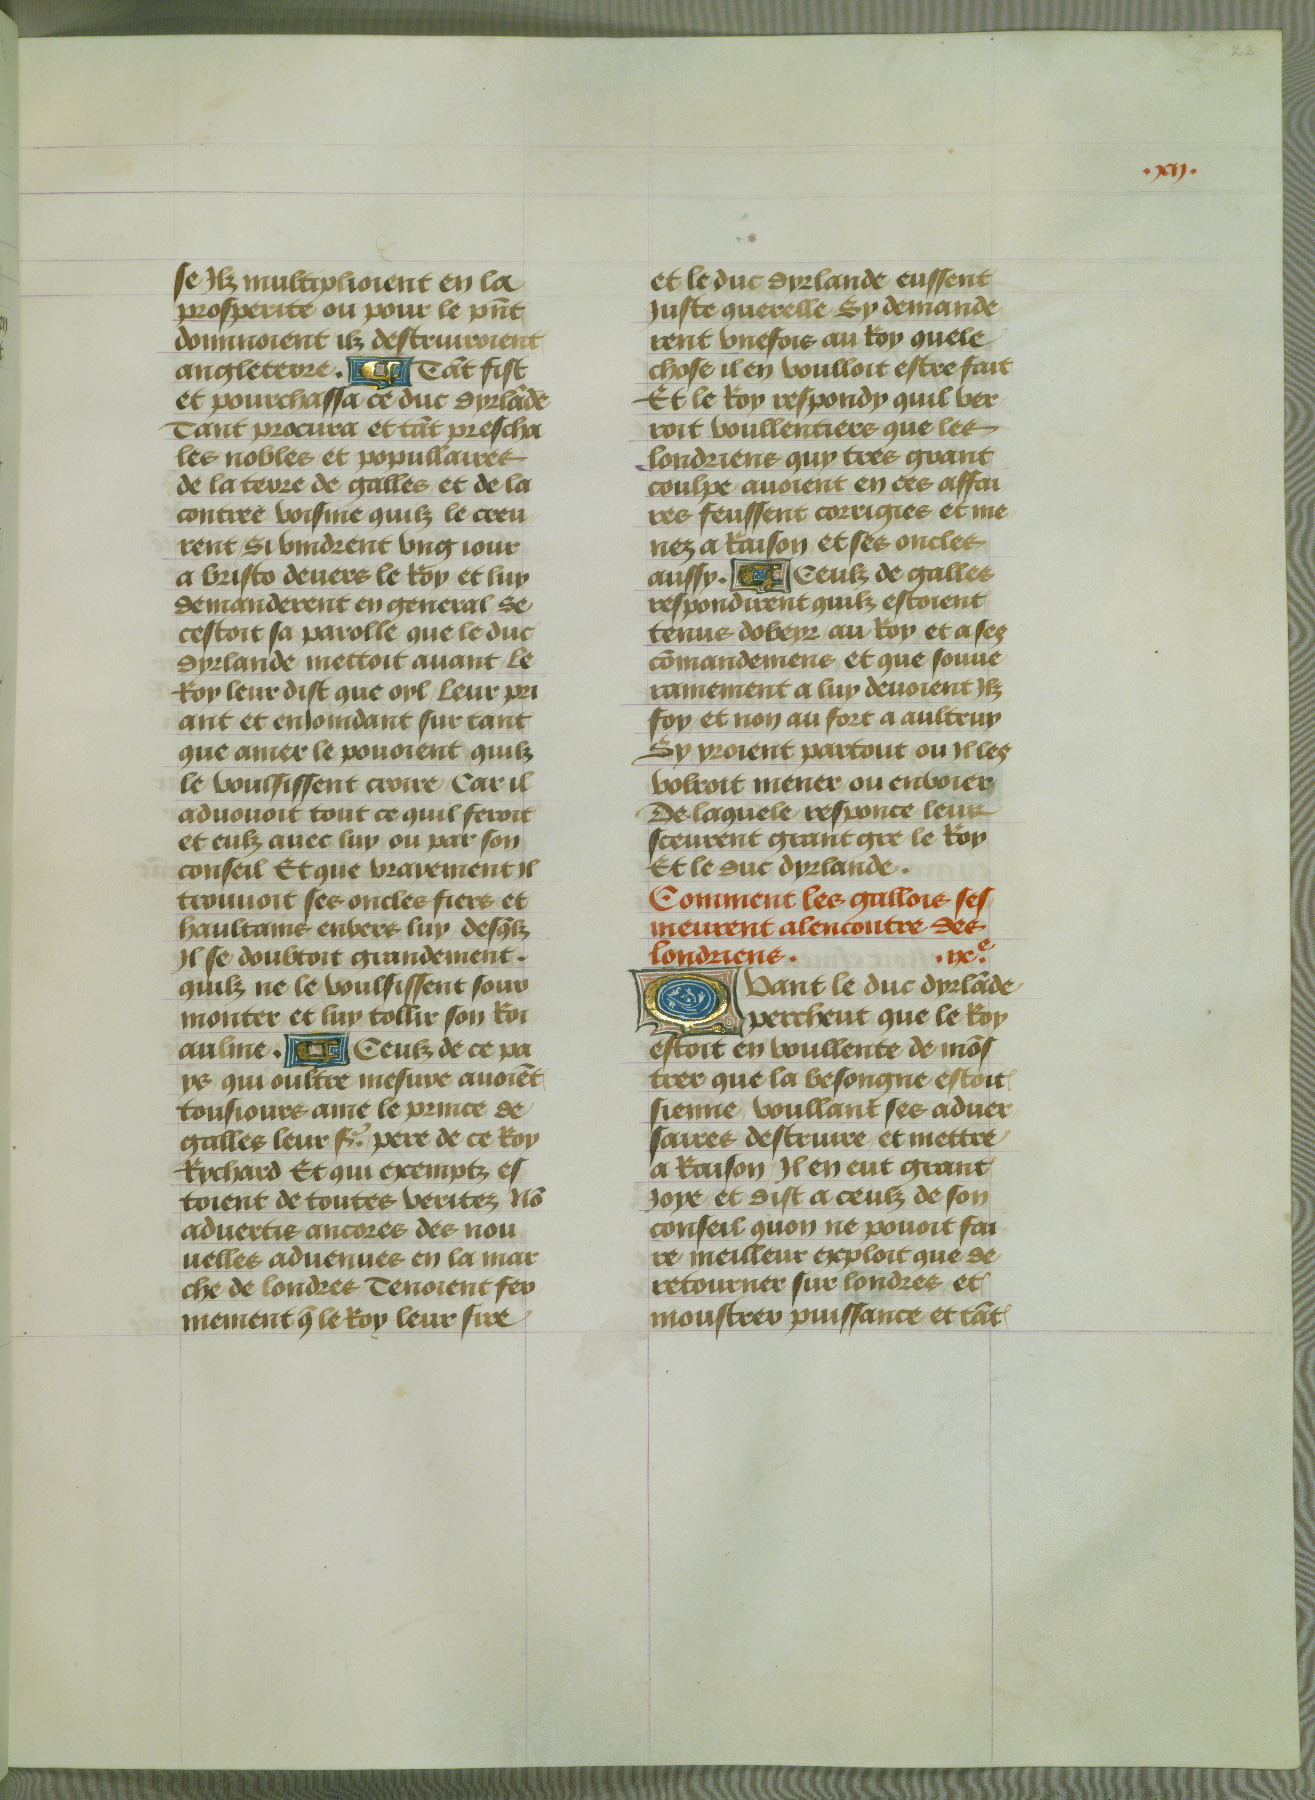 22
.xij.
se Jlz multiplioient en la
prosperite ou pour le pn̄t
dominoient ilz destruiroient
angleterre. ¶ Tāt fist
et pourchassa ce duc dyrlāde
Tant procura et tāt prescha
les nobles et populłaires
de la terre de galles et de la
contree voisine quilz le creu
rent Si vindrent vng iour
a bristo deuers le Roy et luy
demanderent en general se
cestoit sa parolle que le duc
dyrlande mettoit auant Le
Roy leur dist que oyl Leur pri
ant et enjoindant sur tant
que amer le pouoient quilz
le voulsissent croire Car il
aduouoit tout ce quil feroit
et eulz auec luy ou par son
conseil Et que vrayement il
trouuoit ses oncles fiers et
haultains enuers luy desq̄lz
Jl se doubtoit grandement.
quilz ne le voulsissent sour
monter et luy tollir son Roi
aulme. ¶ Ceulz de ce pa
ys qui oultre mesure auoiēt
tousiours ame le prince de
galles leur sr. pere de ce Roy
Rychard Et qui exemptz es
toient de toutes veritez Nō
aduertis ancores des nou
uelles aduenues en la mar
che de londres Tenoient fer
mement q̄ le Roy leur sire
et le duc dyrlande eussent
Juste querelle Sy demande
rent vnefois au Roy quele
chose il en voulloit estre fait
Et le Roy respondy quil ver
roit voullentiers que les
londriens quy tres grant
coulpe auoient en ces affai
res feussent corrigies et me
nez a Raison et ses oncles
aussy. ¶ Ceulz de galles
respondirent quilz estoient
tenus dobeyr au Roy et a ses
cōmandemens et que souue
rainement a luy deuoient Jlz
foy et non au fort a aultruy
Sy yroient partout ou il les
volroit mener ou enuoier
De laquele responce leur
sceurent grant gre le Roy
Et le duc dyrlande.
Comment les gallois ses
meurent alencontre des
londriens. .ix.e
Quant le duc dyrlāde
percheut que le Roy
estoit en voullente de mōs
trer que la besongne estoit
sienne voullant ses aduer
saires destruire et mettre
a Raison Jl en eut grant
Joye et dist a ceulz de son
conseil quon ne pouoit fai
re meilleur exploit que de
retourner sur londres et
moustrer puissance et tāt